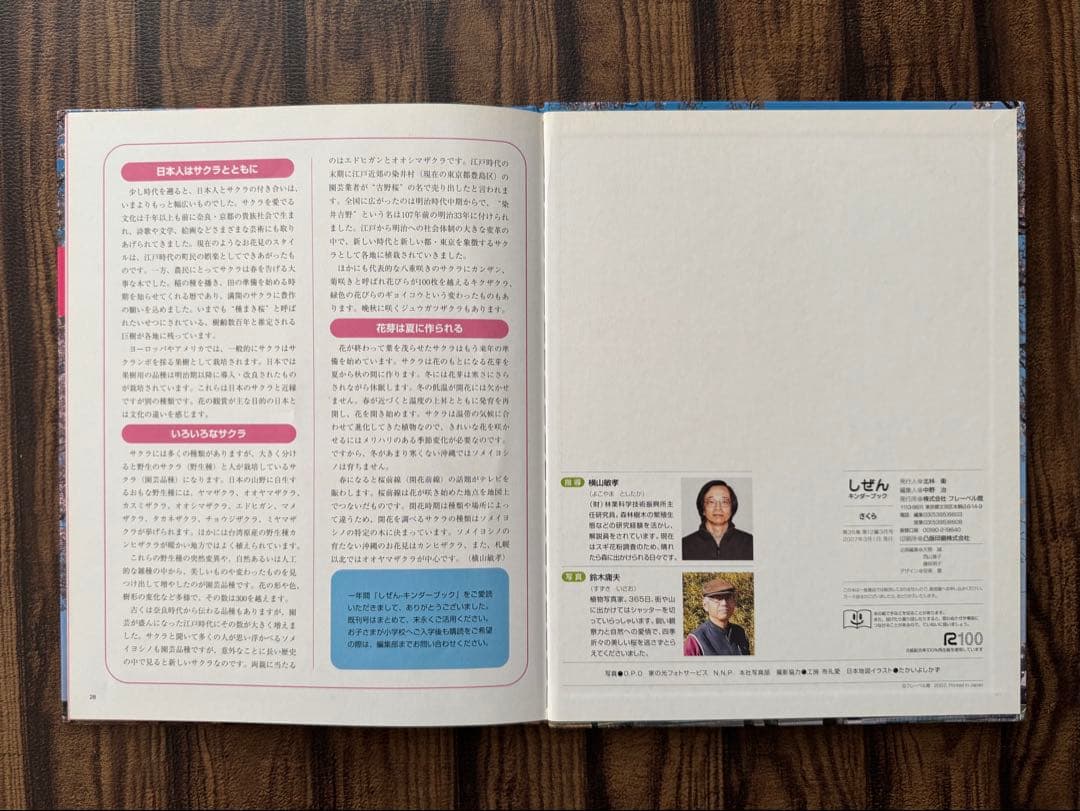 日本人はサクラとともに
少し時代を遡ると、日本人とサクラの付き合いは、
いまよりもっと幅広いものでした。サクラを愛でる
文化は千年以上も前に奈良・京都の貴族社会で生ま
れ、詩歌や文学、絵画などさまざまな芸術にも取り
あげられてきました。現在のようなお花見のスタイ
ルは、江戸時代の町民の娯楽としてできあがったも
のです。一方、農民にとってサクラは春を告げる大
事な木でした。稲の種を播き、田の準備を始める時
期を知らせてくれる暦であり、満開のサクラに豊作
の願いを込めました。いまでも“種まき桜”と呼ば
れたいせつにされている、樹齢数百年と推定される
巨樹が各地に残っています。
ヨーロッパやアメリカでは、一般的にサクラはサ
クランボを採る果樹として栽培されます。日本では
果樹用の品種は明治期以降に導入・改良されたもの
が栽培されています。これらは日本のサクラと近縁
ですが別の種類です。花の観賞が主な目的の日本と
は文化の違いを感じます。
いろいろなサクラ
サクラには多くの種類がありますが、大きく分け
ると野生のサクラ（野生種）と人が栽培しているサ
クラ（園芸品種）になります。日本の山野に自生す
るおもな野生種には、ヤマザクラ、オオヤマザクラ、
カスミザクラ、オオシマザクラ、エドヒガン、マメ
ザクラ、タカネザクラ、チョウジザクラ、ミヤマザ
クラが挙げられます。ほかには台湾原産の野生種カ
ンヒザクラが暖かい地方ではよく植えられています。
これらの野生種の突然変異や、自然あるいは人工
的な雑種の中から、美しいものや変わったものを見
つけ出して増やしたのが園芸品種です。花の形や色、
樹形の変化など多様で、その数は300を越えます。
古くは奈良時代から伝わる品種もありますが、園
芸が盛んになった江戸時代にその数が大きく増えま
した。サクラと聞いて多くの人が思い浮かべるソメ
イヨシノも園芸品種ですが、意外なことに長い歴史
の中で見ると新しいサクラなのです。両親に当たる
28
のはエドヒガンとオオシマザクラです。江戸時代の
末期に江戸近郊の染井村（現在の東京都豊島区）の
園芸業者が“吉野桜”の名で売り出したと言われま
す。全国に広がったのは明治時代中期からで、“染
井吉野”という名は107年前の明治33年に付けられ
ました。江戸から明治への社会体制の大きな変革の
中で、新しい時代と新しい都・東京を象徴するサク
ラとして各地に植栽されていきました。
ほかにも代表的な八重咲きのサクラにカンザン、
菊咲きと呼ばれ花びらが100枚を越えるキクザクラ、
緑色の花びらのギョイコウという変わったものもあ
ります。晩秋に咲くジュウガツザクラもあります。
花芽は夏に作られる
花が終わって葉を茂らせたサクラはもう来年の準
備を始めています。サクラは花のもとになる花芽を
夏から秋の間に作ります。冬には花芽は寒さにさら
されながら休眠します。冬の低温が開花には欠かせ
ません。春が近づくと温度の上昇とともに発育を再
開し、花を開き始めます。サクラは温帯の気候に合
わせて進化してきた植物なので、きれいな花を咲か
せるにはメリハリのある季節変化が必要なのです。
ですから、冬があまり寒くない沖縄ではソメイヨシ
ノは育ちません。
春になると桜前線（開花前線）の話題がテレビを
賑わします。桜前線は花が咲き始めた地点を地図上
でつないだものです。開花時期は種類や場所によっ
て違うため、開花を調べるサクラの種類はソメイヨ
シノの特定の木に決まっています。ソメイヨシノの
育たない沖縄のお花見はカンヒザクラ、また、札幌
以北ではオオヤマザクラが中心です。（横山敏孝）
一年間『しぜん-キンダーブック』をご愛読
いただきまして、ありがとうございました。
既刊号はまとめて、末永くご活用ください。
お子さまが小学校へご入学後も購読をご希望
の際は、編集部までお問い合わせください。
指導 横山敏孝
（よこやま としたか）
（財）林業科学技術振興所主
任研究員。森林樹木の繁殖生
態などの研究経験を活かし、
解説員をされています。現在
はスギ花粉調査のため、晴れ
たら森に出かけられる日々です。
写真 鈴木庸夫
（すずき いさお）
植物写真家。365日、街や山
に出かけてはシャッターを切
っていらっしゃいます。鋭い観
察力と自然への愛情で、四季
折々の美しい桜を逃さずとら
えてくださいました。
写真●O.P.O 家の光フォトサービス N.N.P. 本社写真部 撮影協力●工房 寺礼愛 日本地図イラスト●たかいよしかず
しぜん
キンダーブック
さくら
第35巻 第12編 3月号
2007年3月1日 発行
発行人●北林 衛
編集人●中野 治
発行所●株式会社 フレーベル館
印刷所●凸版印刷株式会社
R100
©フレーベル館 2007, Printed in Japan